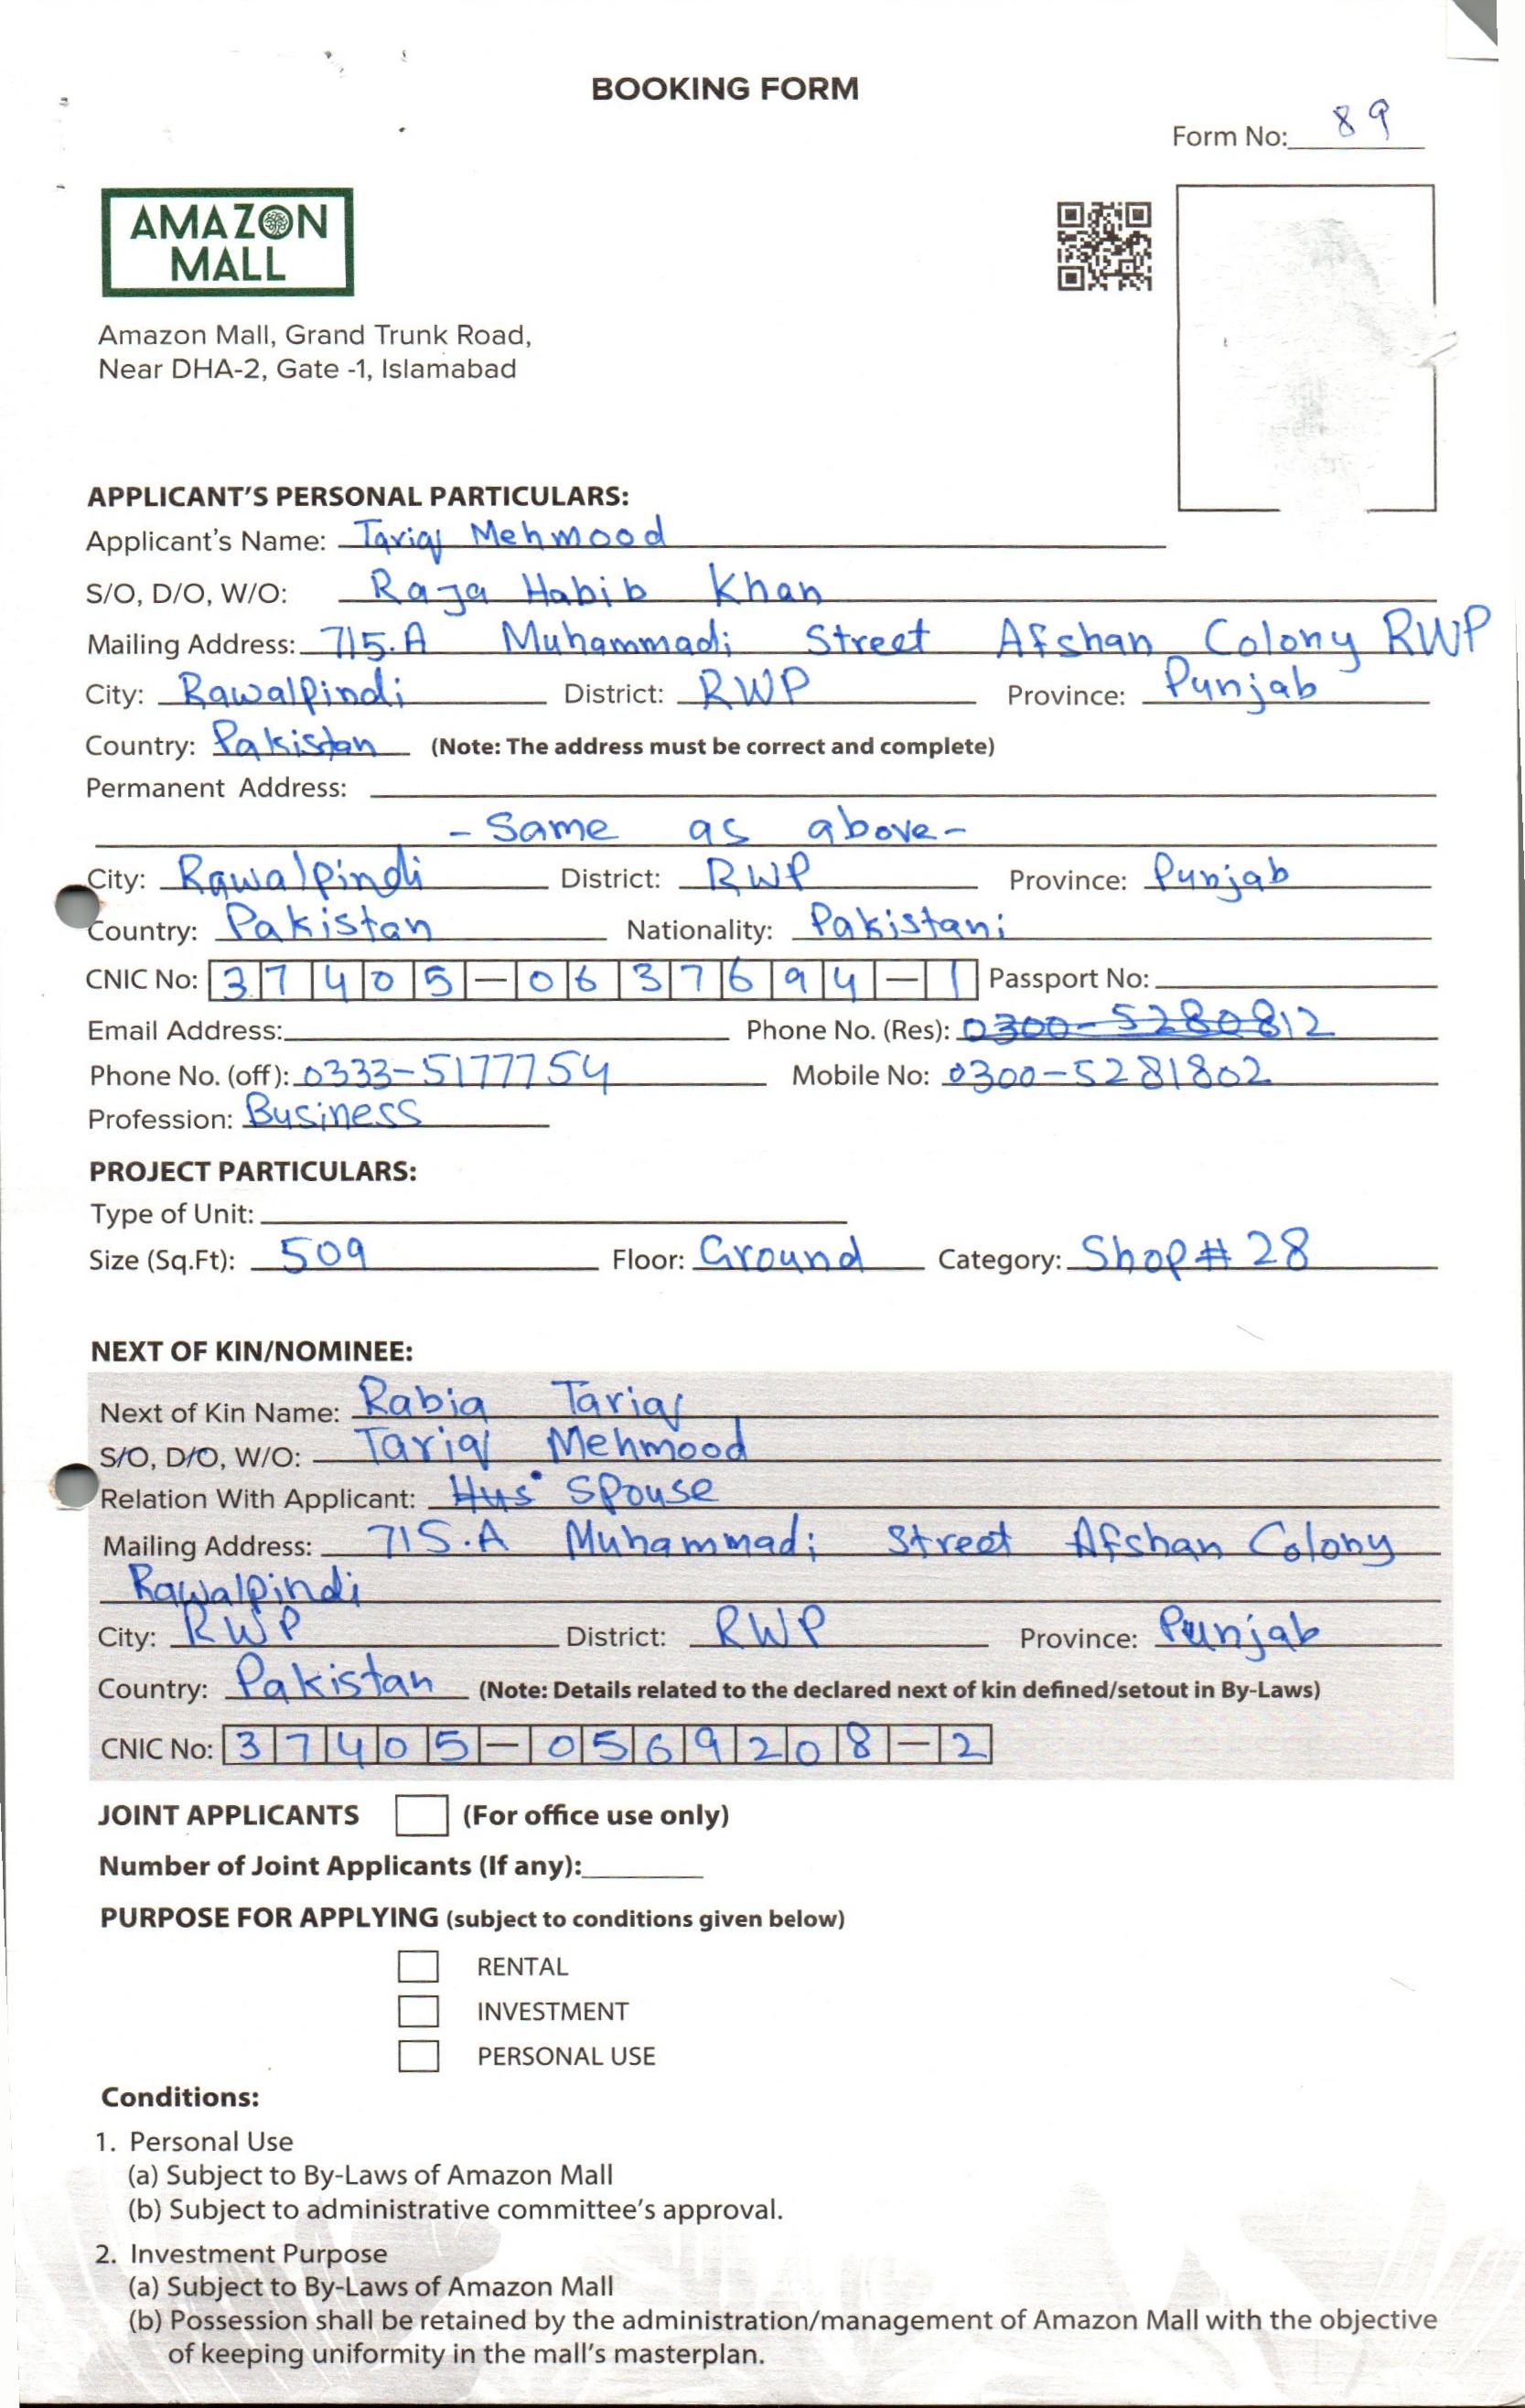 BOOKING FORM
Form No: 89
AMAZON
MALL
Amazon Mall, Grand Trunk Road,
Near DHA-2, Gate -1, Islamabad
APPLICANT'S PERSONAL PARTICULARS:
Applicant's Name: Tariq Mehmood
S/O, D/O, W/O: Raja Habib Khan
Mailing Address: 715.A Muhammadi Street Afshan Colony RWP
City: Rawalpindi District: RWP Province: Punjab
Country: Pakistan (Note: The address must be correct and complete)
Permanent Address:
- Same as above -
City: Rawalpindi District: RWP Province: Punjab
Country: Pakistan Nationality: Pakistani
CNIC No: 37405-0637694-1 Passport No:
Email Address: Phone No. (Res): 0300-5280812
Phone No. (off): 0333-5177754 Mobile No: 0300-5281802
Profession: Business
PROJECT PARTICULARS:
Type of Unit:
Size (Sq.Ft): 509 Floor: Ground Category: Shop# 28
NEXT OF KIN/NOMINEE:
Next of Kin Name: Rabia Tariq
S/O, D/O, W/O: Tariq Mehmood
Relation With Applicant: Hus Spouse
Mailing Address: 715.A Muhammadi Street Afshan Colony
Rawalpindi
City: RWP District: RWP Province: Punjab
Country: Pakistan (Note: Details related to the declared next of kin defined/setout in By-Laws)
CNIC No: 37405-0569208-2
JOINT APPLICANTS (For office use only)
Number of Joint Applicants (If any):
PURPOSE FOR APPLYING (subject to conditions given below)
RENTAL
INVESTMENT
PERSONAL USE
Conditions:
1. Personal Use
(a) Subject to By-Laws of Amazon Mall
(b) Subject to administrative committee's approval.
2. Investment Purpose
(a) Subject to By-Laws of Amazon Mall
(b) Possession shall be retained by the administration/management of Amazon Mall with the objective
of keeping uniformity in the mall's masterplan.